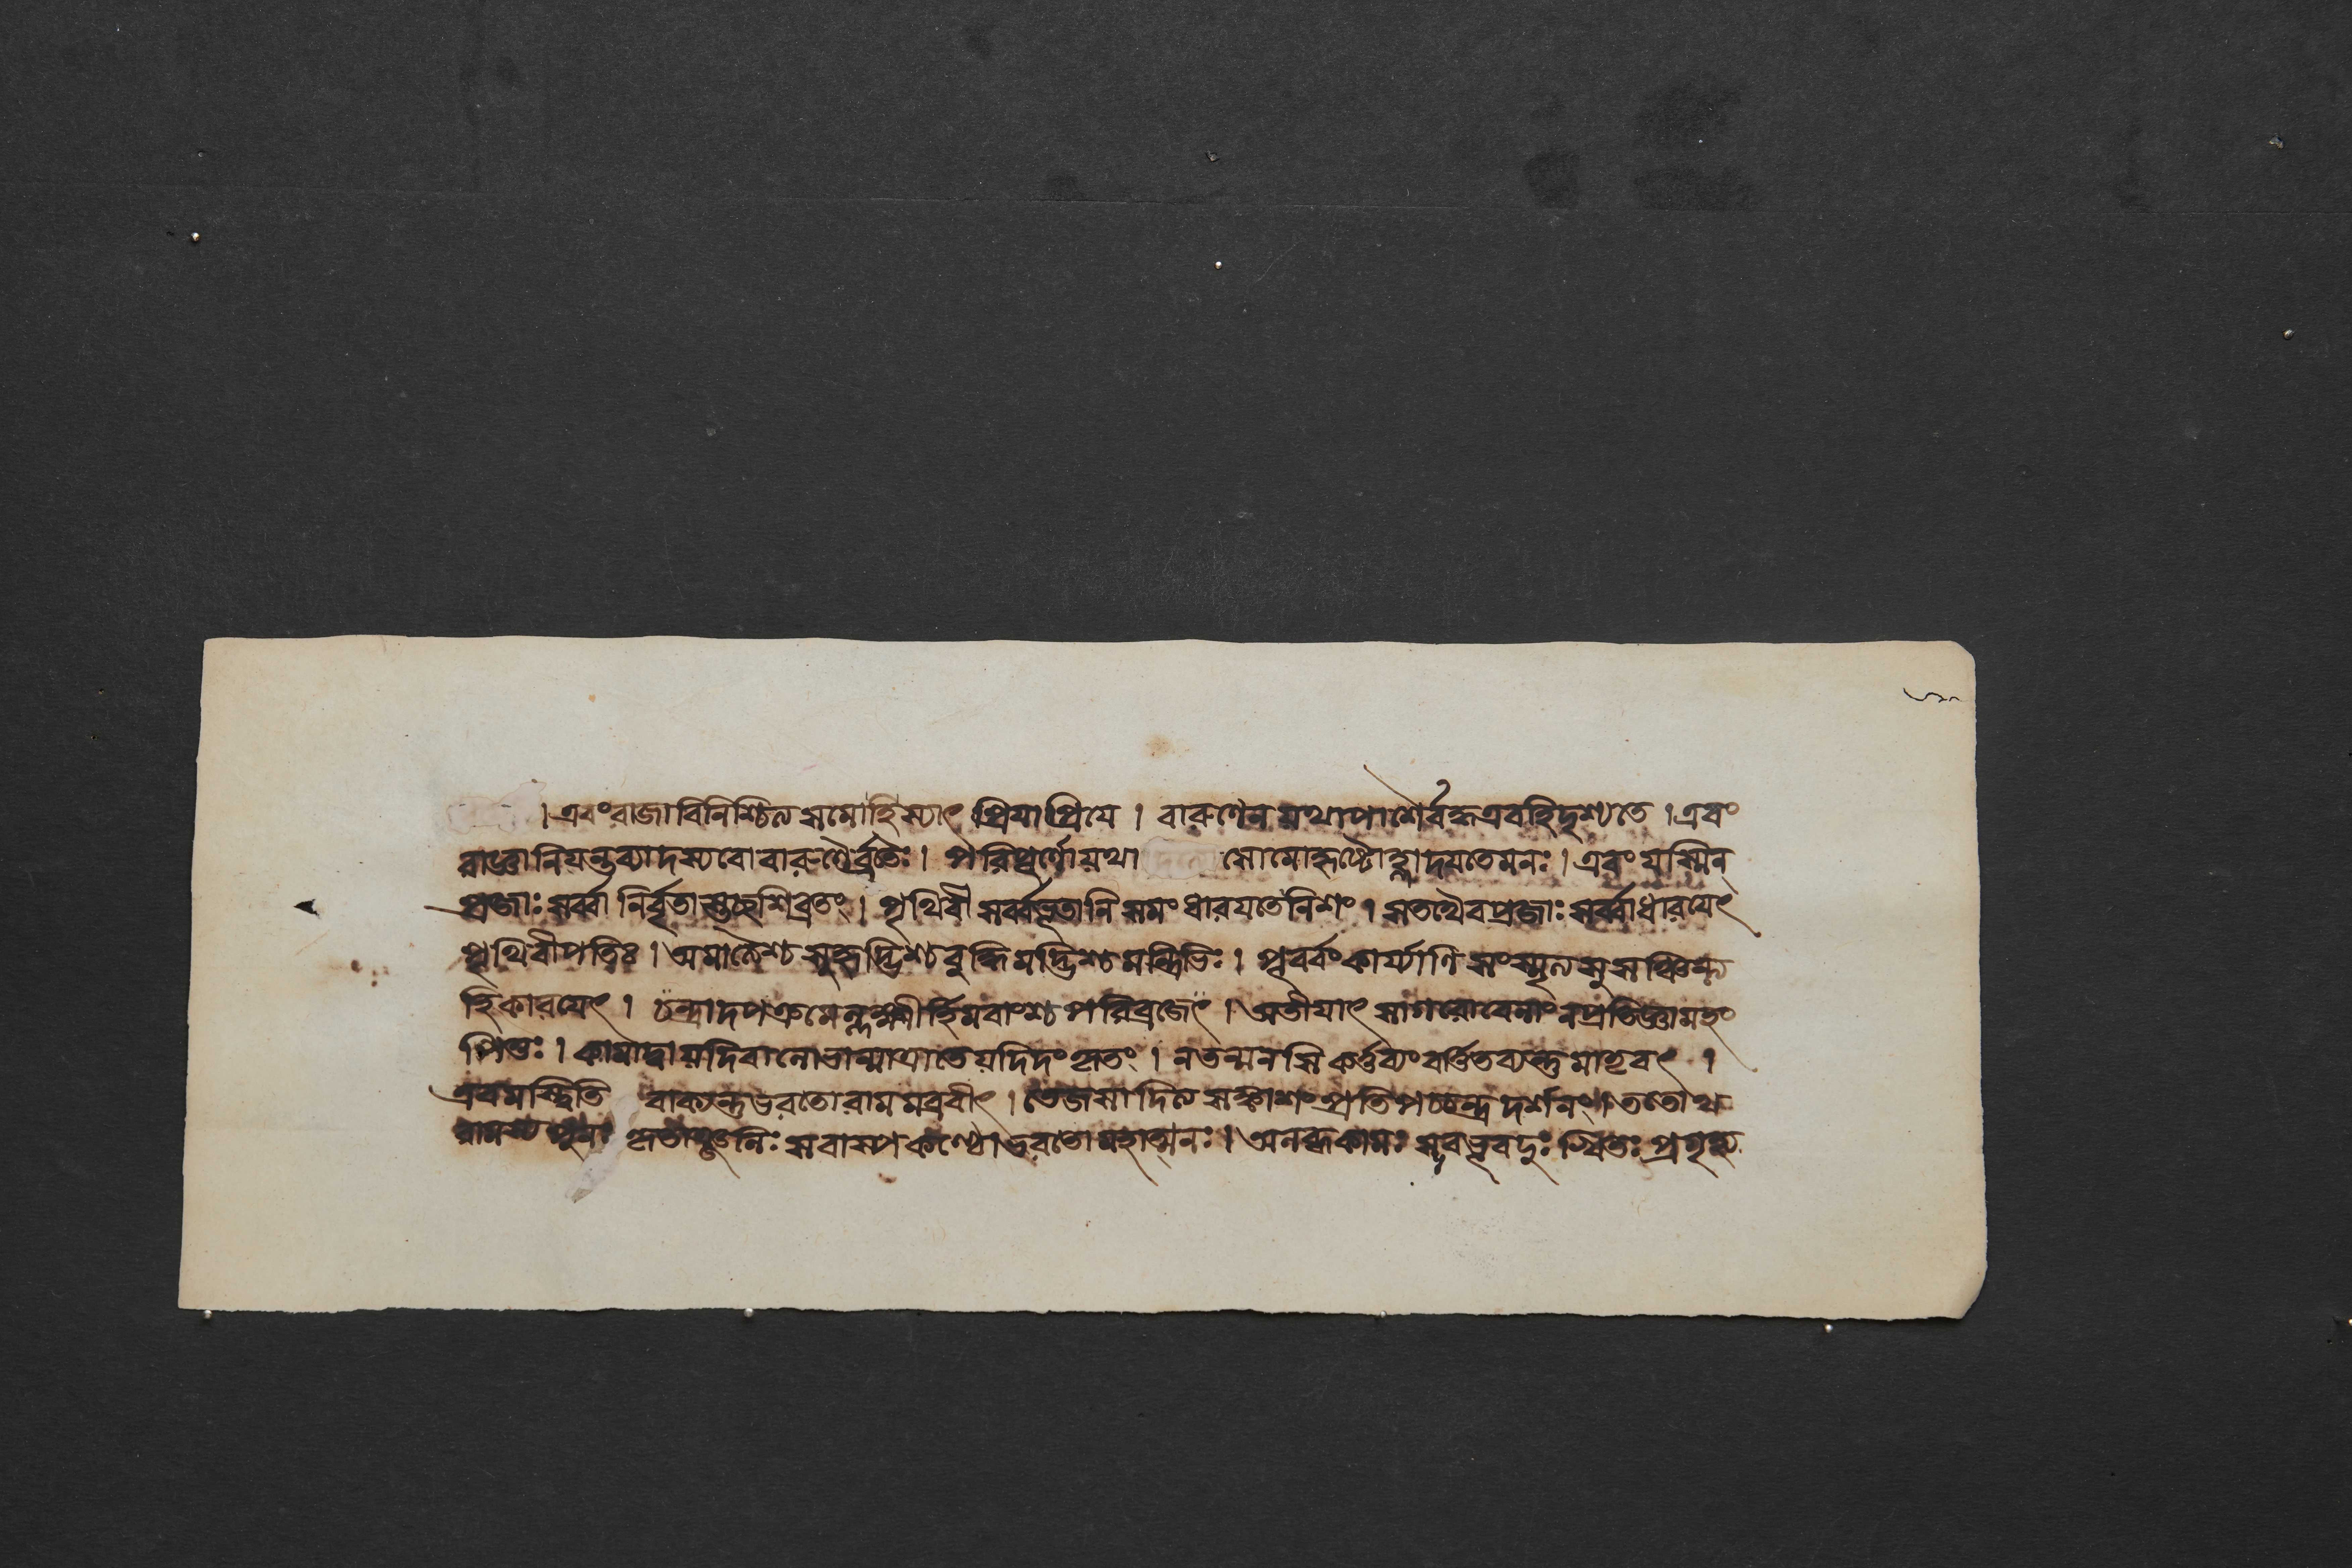 । এবং রাজা বিনিশ্চিত্য সমোহি স্যাৎ প্রিয়াপ্রিয়ে । বারুণেন যথাপাশৈর্বদ্ধ এবহি দৃশ্যতে । এবং
রাজ্ঞানিয়ন্তব্যাদস্যবো বারুণৈর্ব্রতৈঃ । পরিপূর্ণো যথা সোমোহৃষ্টোহ্লাদয়তেমনঃ । এবং যস্মিন্
প্রজাঃ সর্ব্বা নির্বৃতাস্তচ্ছশিব্রতং । পৃথিবী সর্ব্বভূতানি সমং ধারয়তেনিশং । সতথৈবপ্রজাঃ সর্ব্বাধারয়েৎ
পৃথিবীপতিঃ । অমাত্যৈশ্চ সুহৃদ্ভিশ্চ বুদ্ধিমদ্ভিশ্চ মন্ত্রিভিঃ । পূর্ব্বং কার্য্যাণি সংস্মৃত্য সুসঞ্চিন্ত্য
হি কারয়েৎ । চন্দ্রাদপক্রমেল্লক্ষ্মীর্হিমবাংশ্চ পরিব্রজেৎ । অতীয়াৎ সাগরোবেলাং নপ্রতিজ্ঞামহং
পিতুঃ । কামাদ্বা যদিবা লোভান্মাত্রাতে যদিদং কৃতং । নতন্মনসি কর্ত্তব্যং বর্ত্তিতব্যন্তু মাতৃবৎ ।
এবমস্ত্বিতি বাক্যন্তু ভরতোরামমব্রবীৎ । তেজসাদিত্যসঙ্কাশং প্রতিপচ্চন্দ্রদর্শনং । ততোথ
রামস্য পুনঃ কৃতাঞ্জলিঃ সবাষ্পকণ্ঠো ভরতো মহাত্মনঃ । অলব্ধকামঃ সবভূবদুঃখিতঃ প্রগৃহ্য